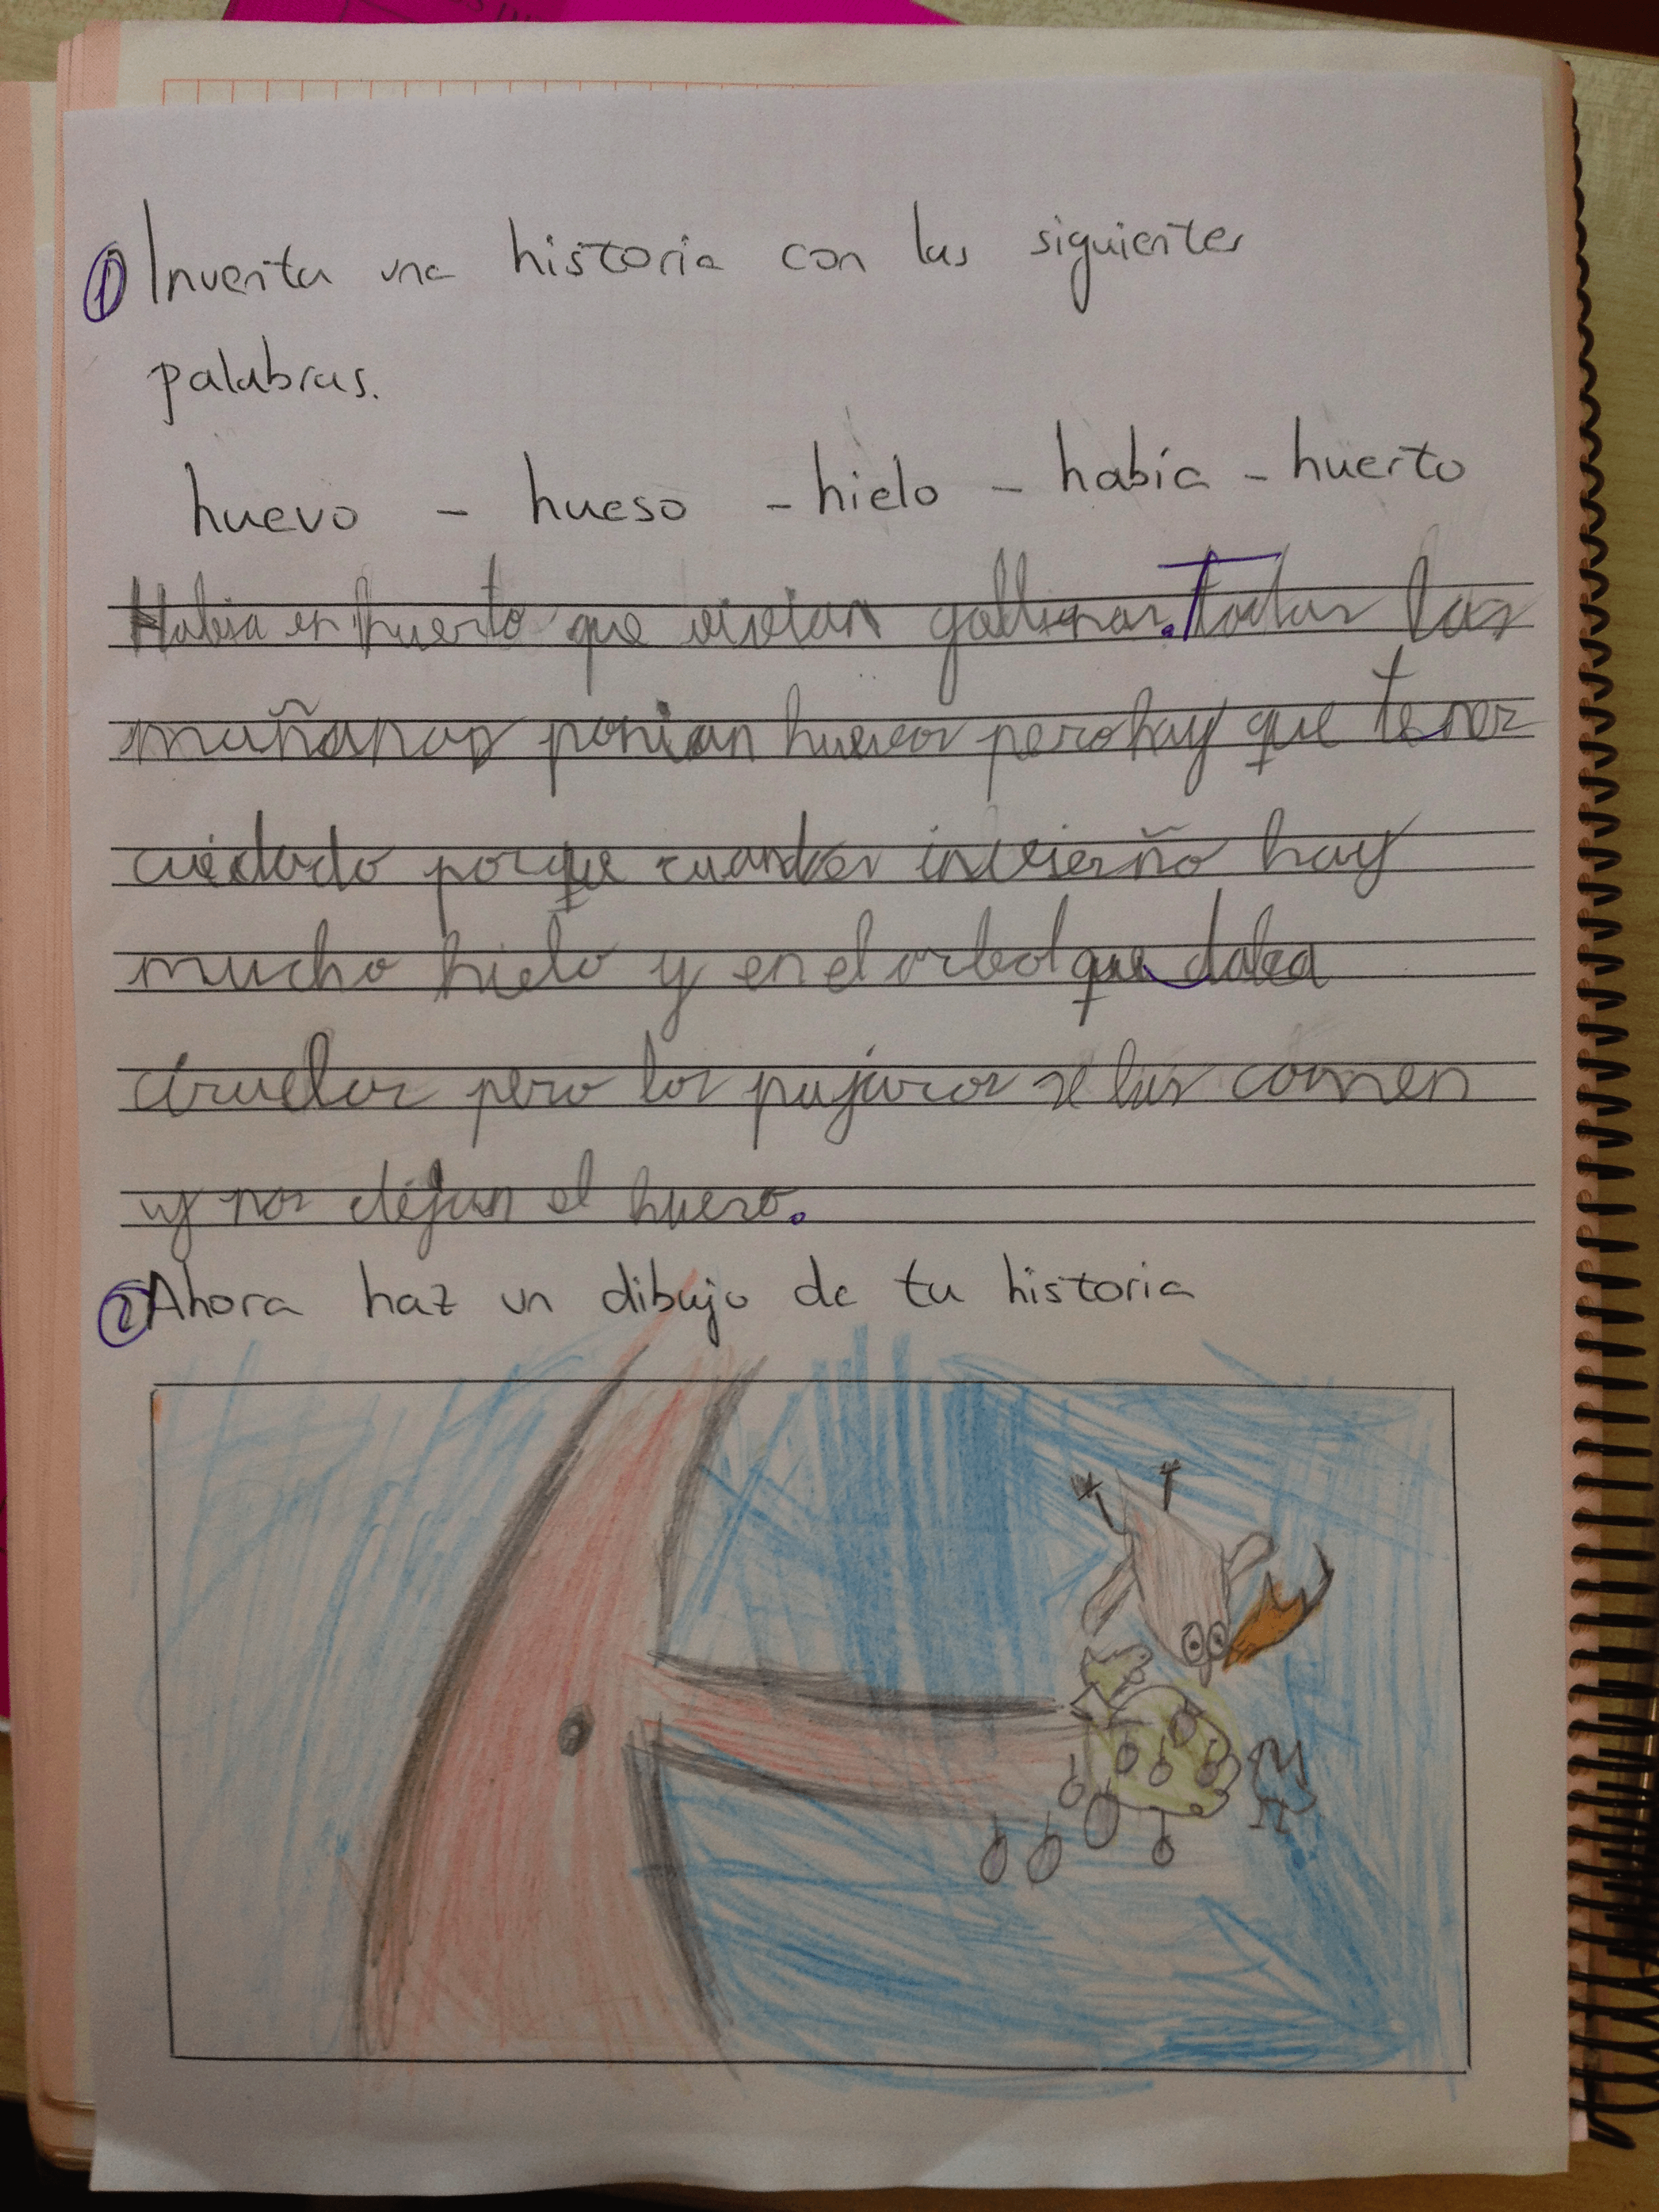 ① Inventa una historia con las siguientes
palabras.
huevo - hueso - hielo - había - huerto
Habia en huerto que vivian gallinas. Todas las
mañanas ponian huevos pero hay que tener
cuidado porque cuando es invierño hay
mucho hielo y en el arbol que daba
ciruelas pero los pajaros se las comen
y nos dejan el hueso.
② Ahora haz un dibujo de tu historia